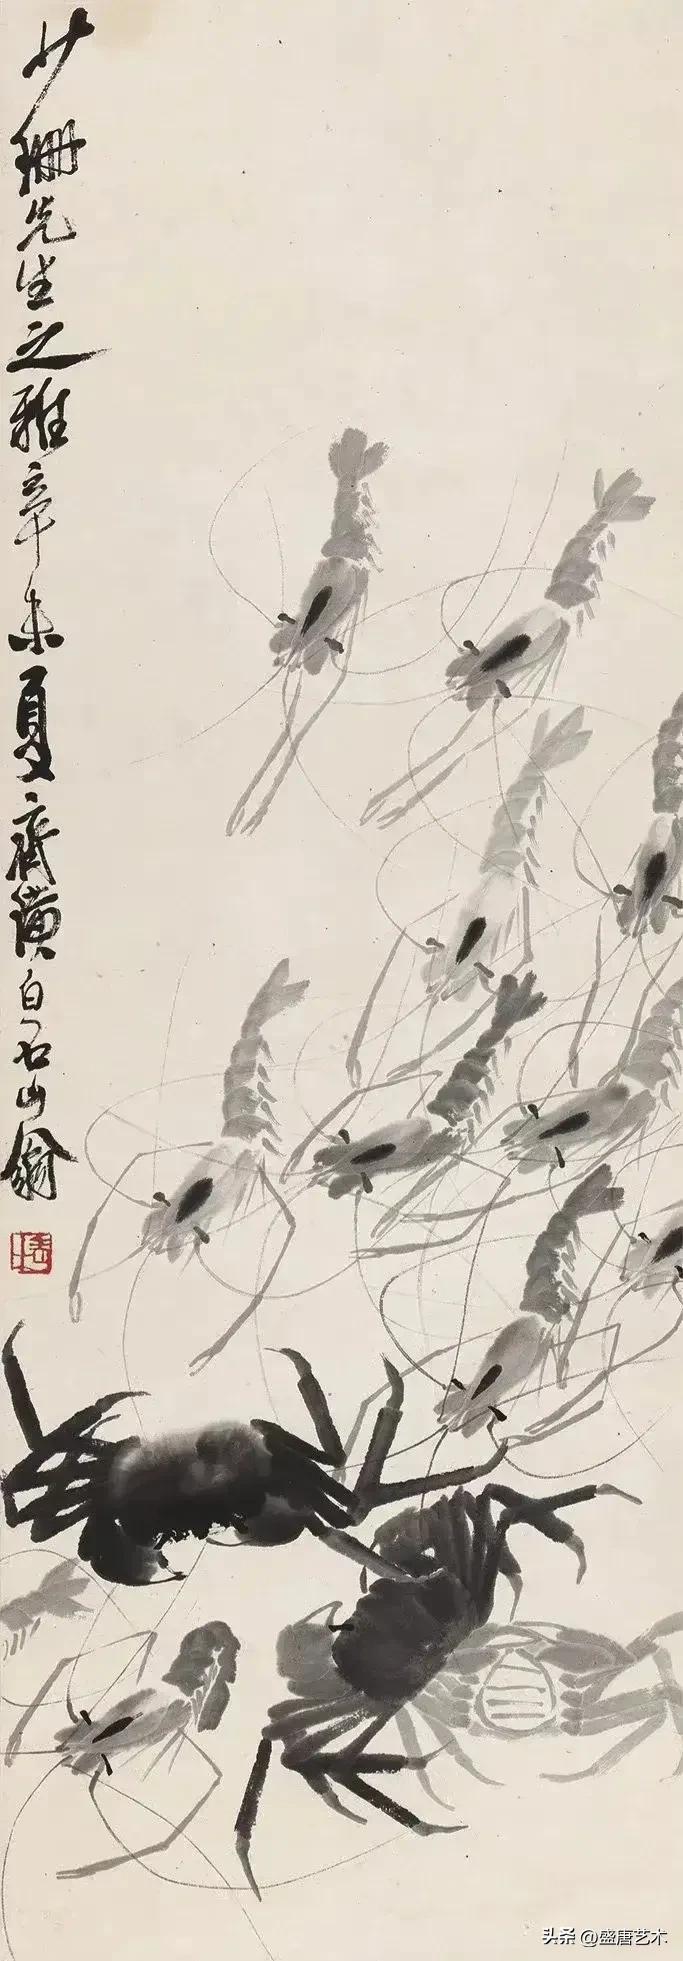 少珊先生之雅辛未夏齊璜白石山翁
头条 @盛唐艺术